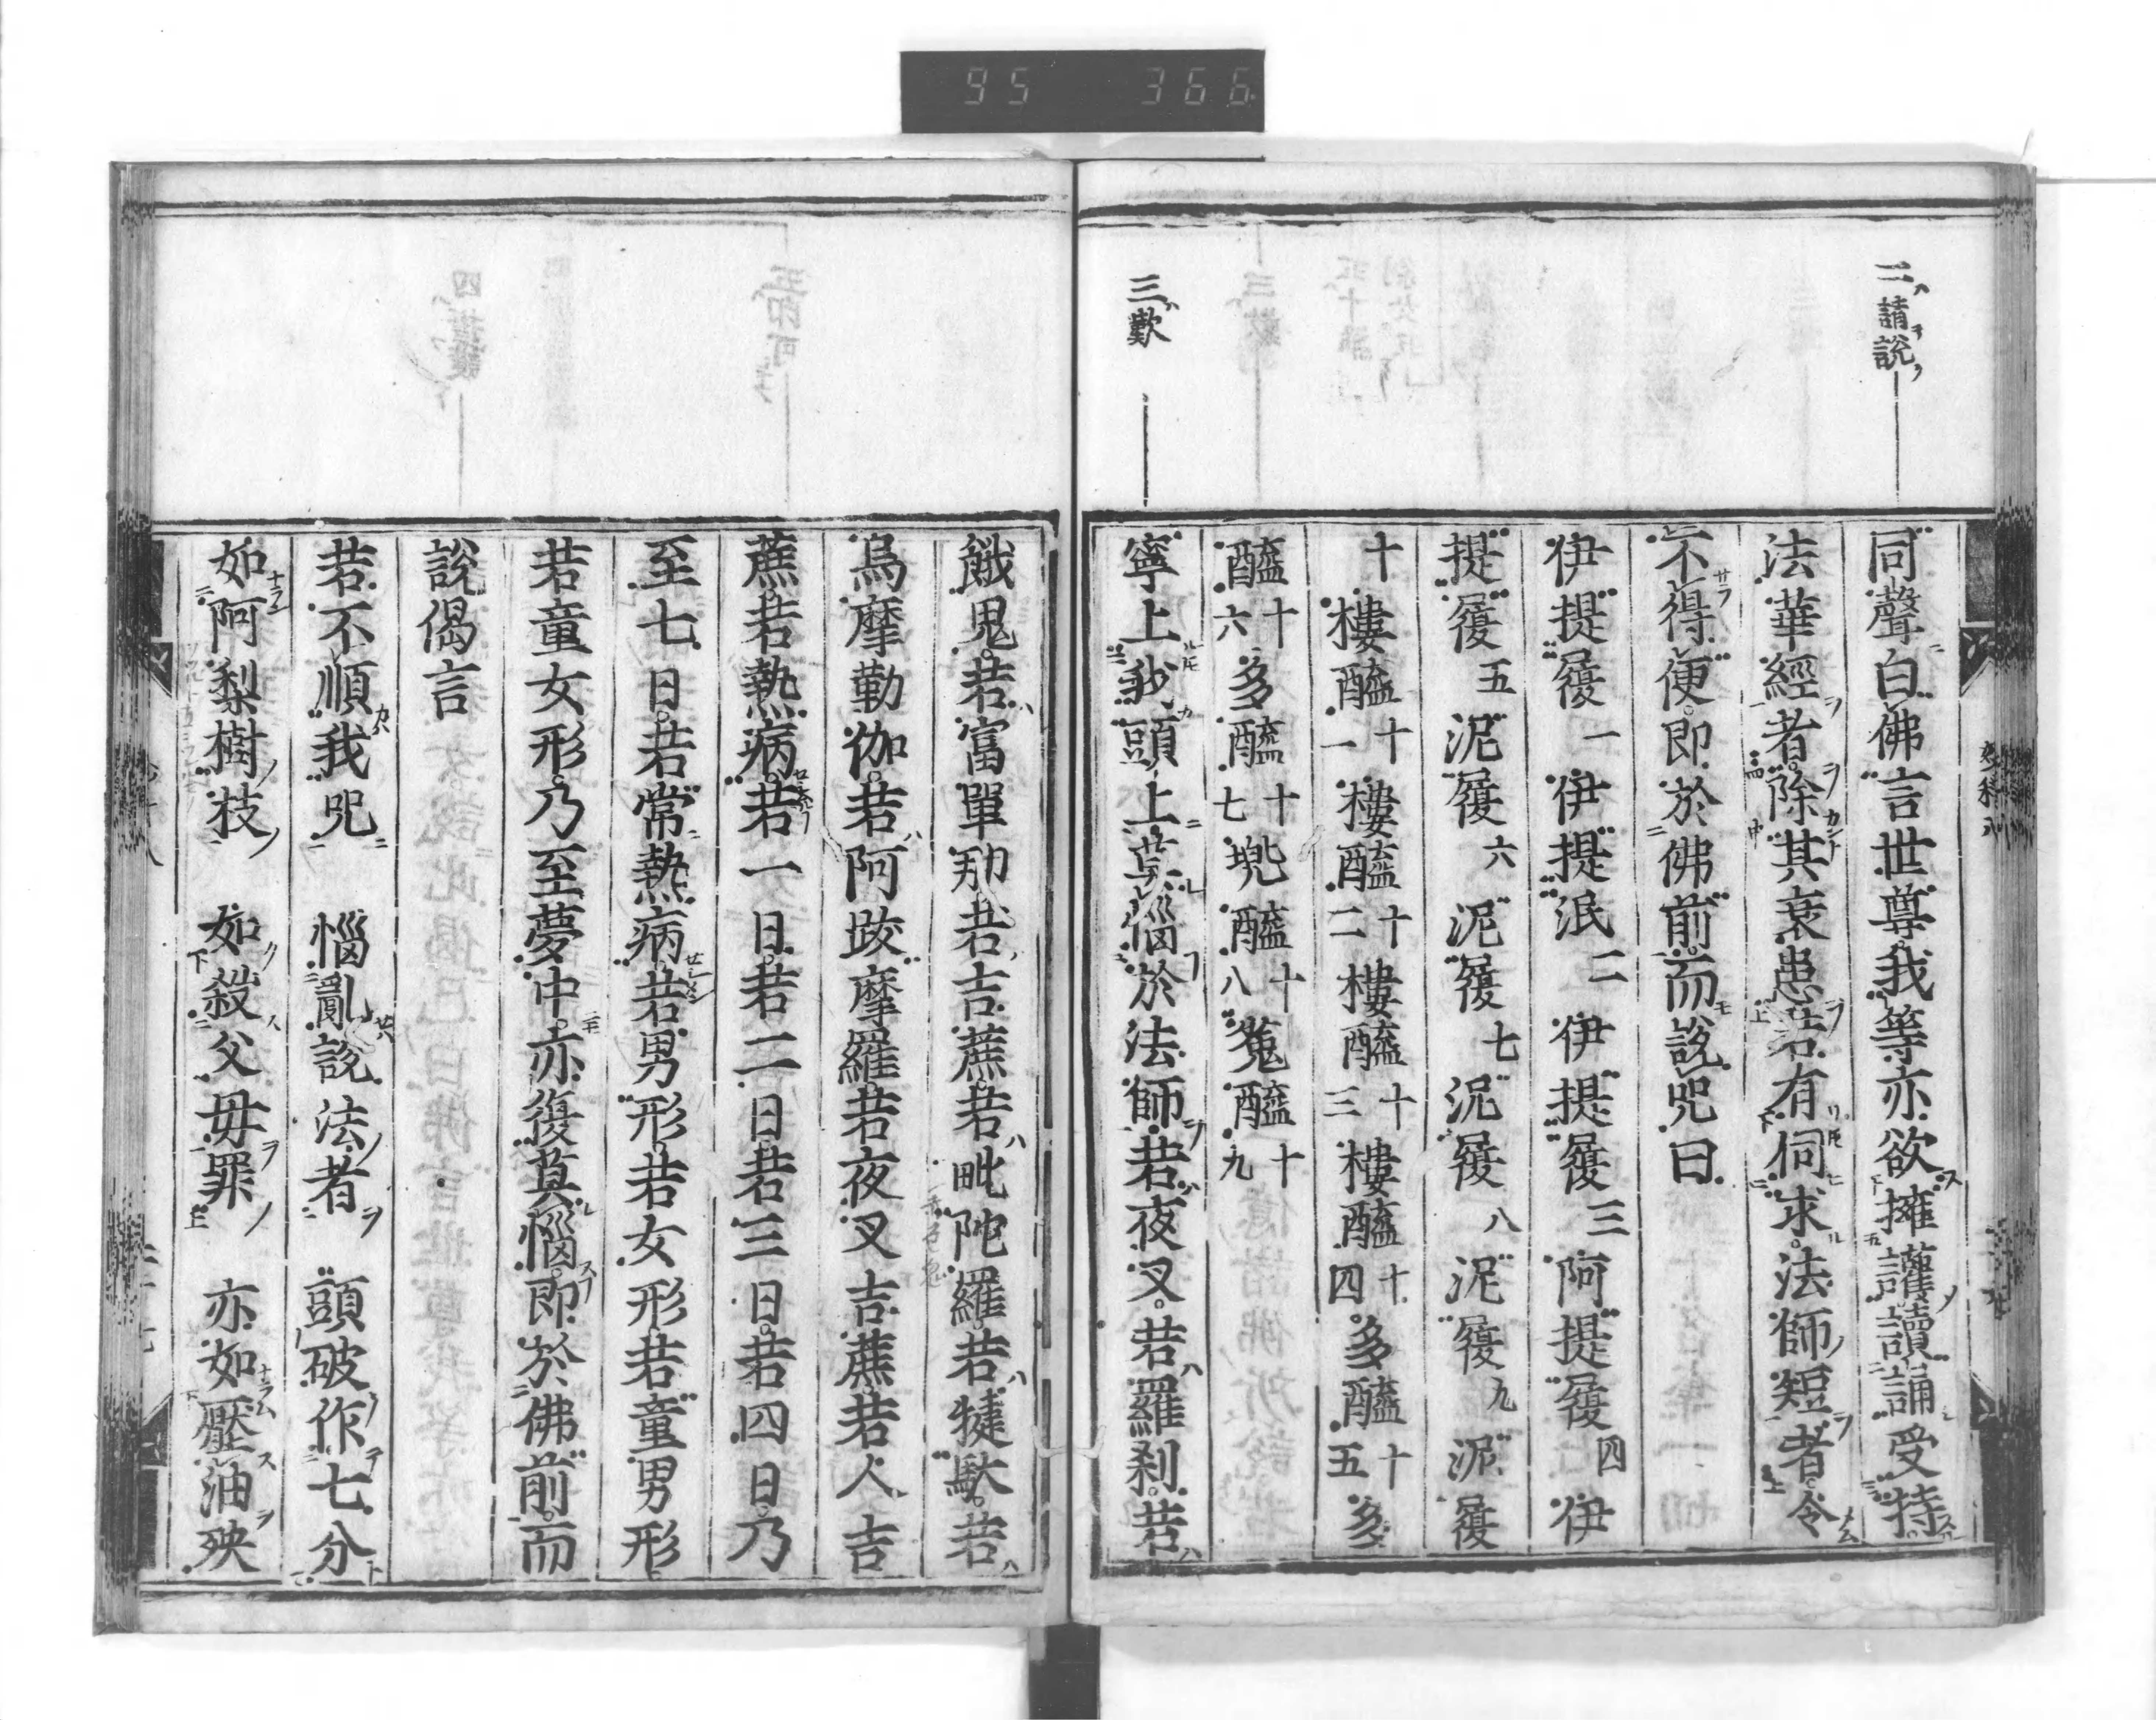 95 366
二請說
同聲白佛言世尊我等亦欲擁護讀誦受持
法華經者除其衰患若有伺求法師短者令
不得便即於佛前而說咒曰
伊提履一伊提泯二伊提履三阿提履四伊
提履五泥履六泥履七泥履八泥履九泥履
十樓醯十一樓醯十二樓醯十三樓醯十四多醯十五多
醯十六多醯十七兠醯十八㝹醯十九
三歎
寧上我頭上莫惱於法師若夜叉若羅剎若
餓鬼若富單那若吉蔗若毗陀羅若犍馱若
烏摩勒伽若阿跋摩羅若夜叉吉蔗若人吉
蔗若熱病若一日若二日若三日若四日乃
至七日若常熱病若男形若女形若童男形
若童女形乃至夢中亦復莫惱即於佛前而
說偈言
若不順我咒　惱亂說法者　頭破作七分
如阿梨樹枝　如殺父母罪　亦如壓油殃